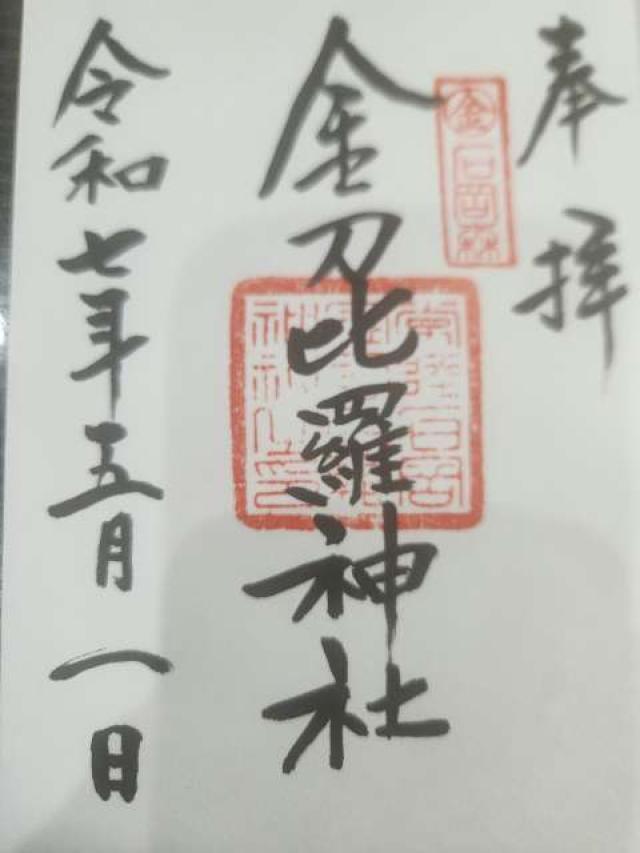 奉拝
金刀比羅神社
令和七年五月一日